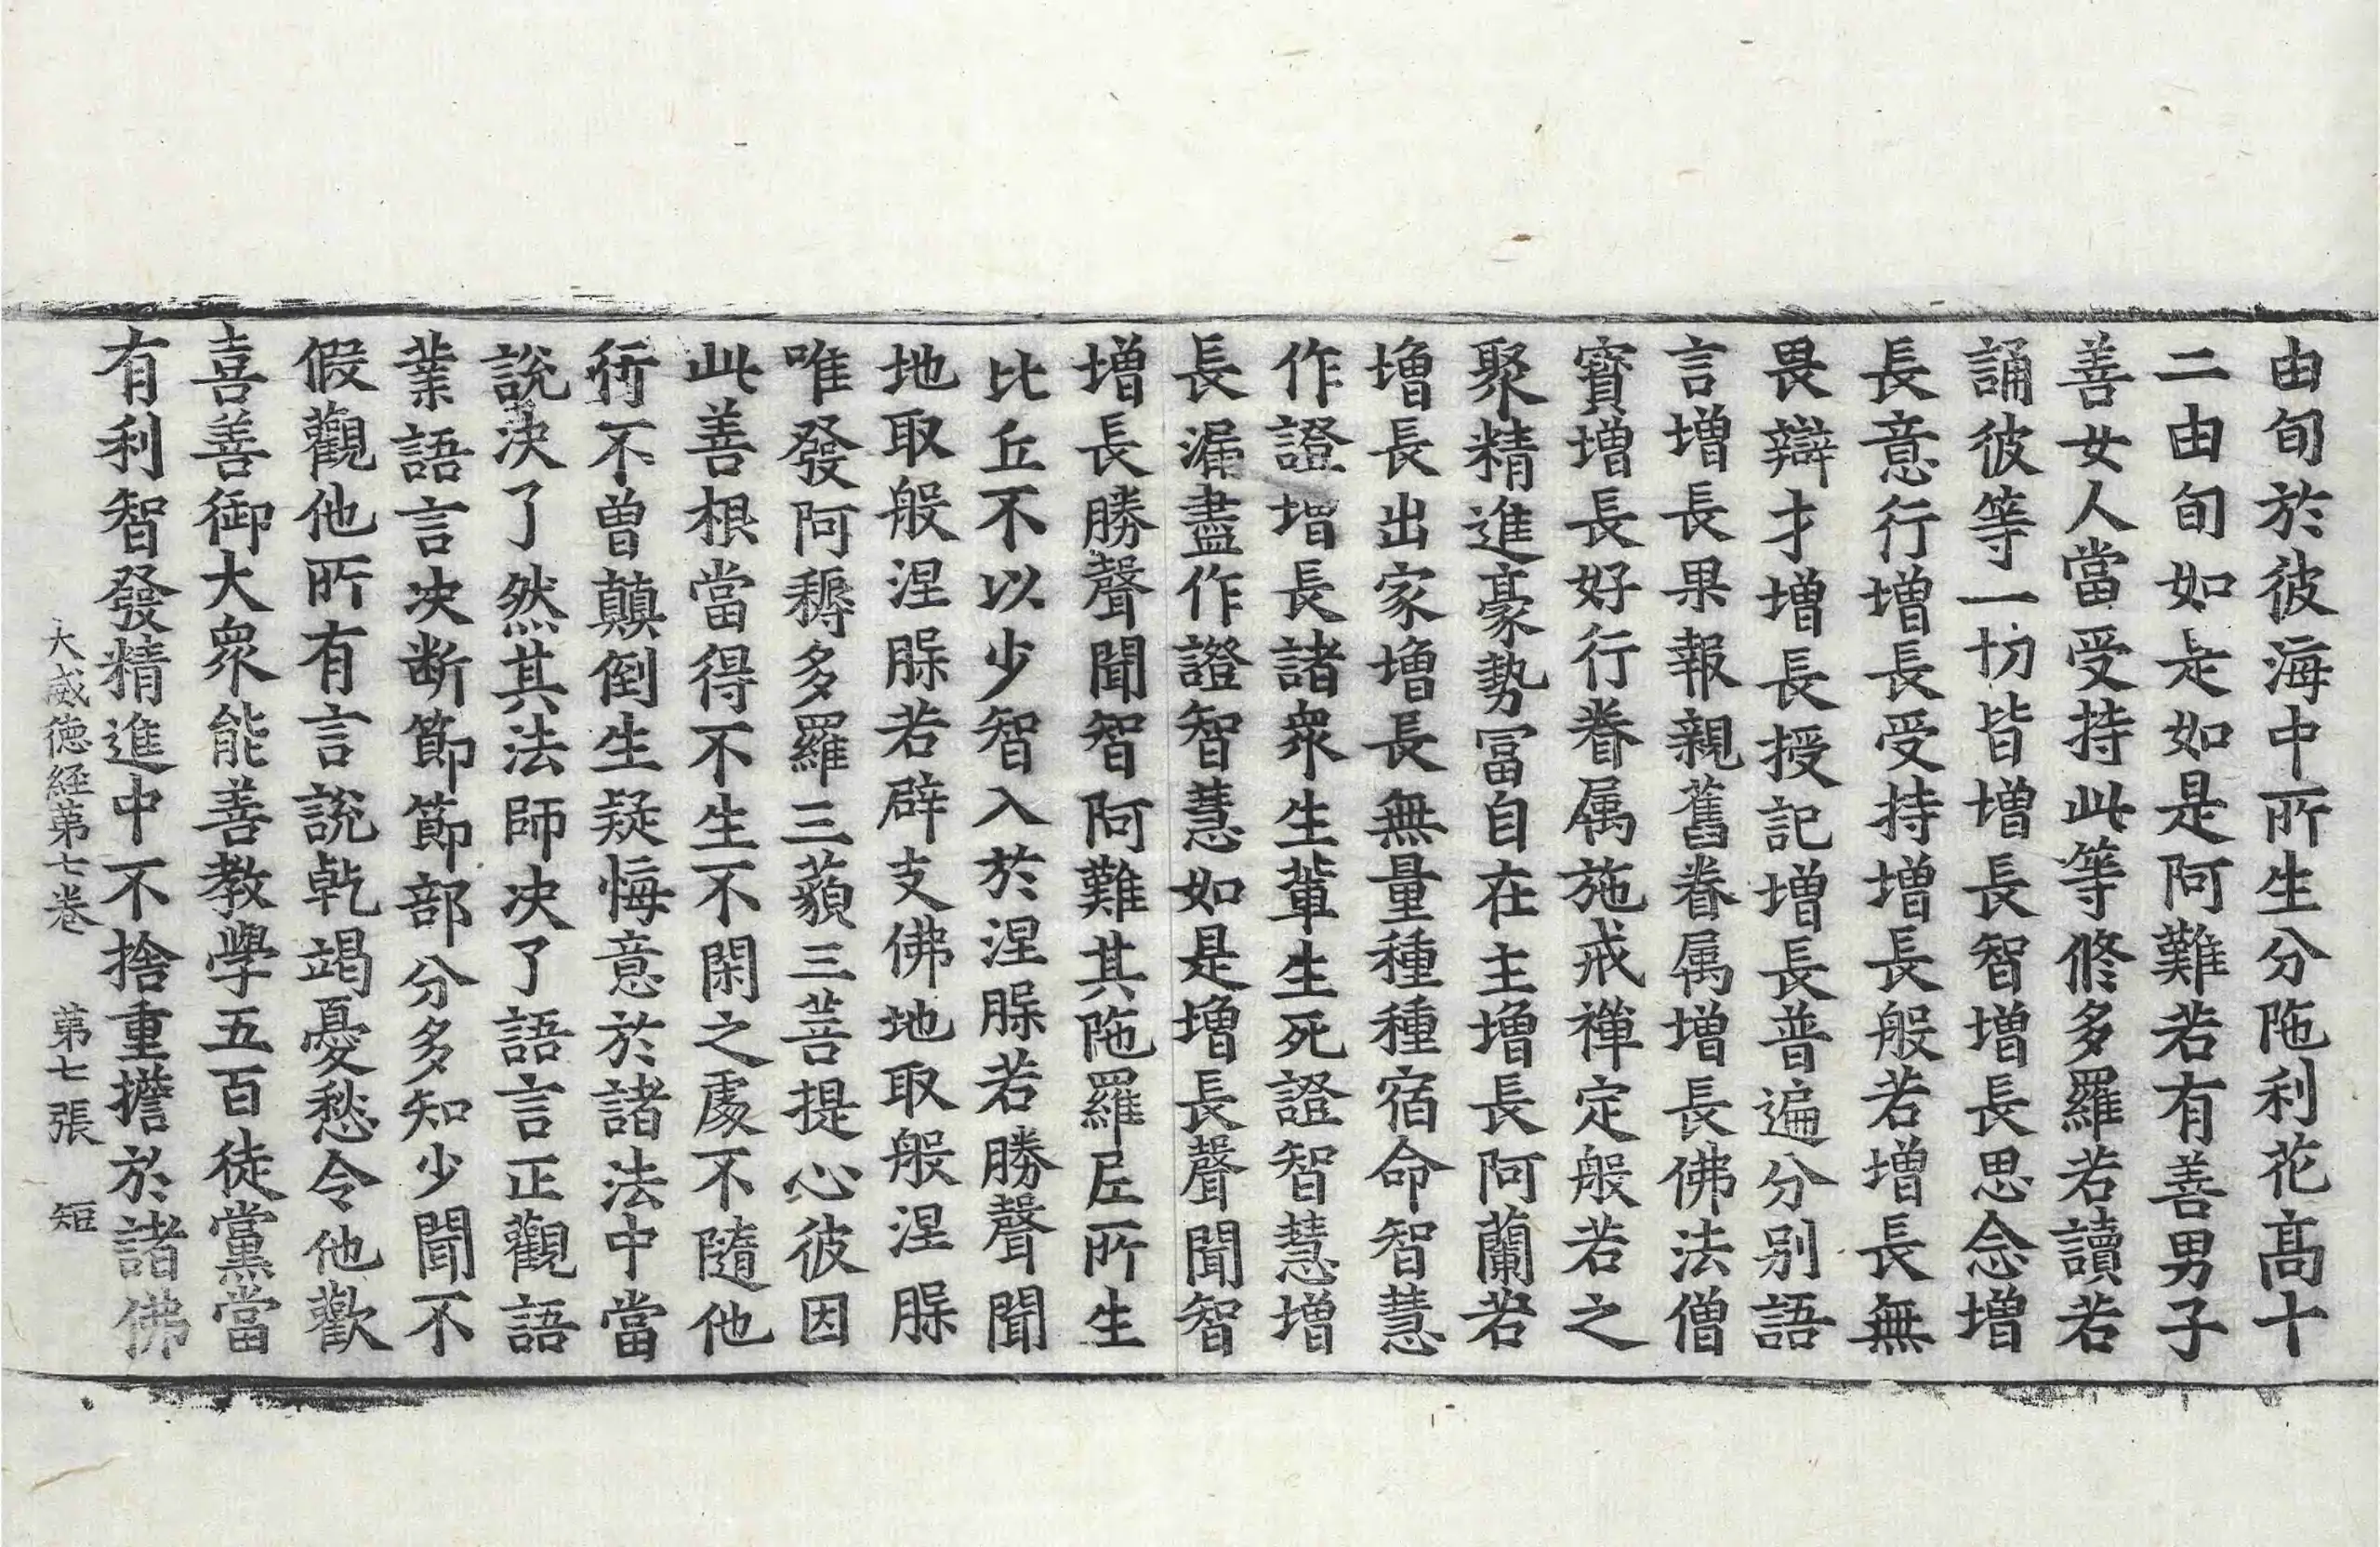 由旬於彼海中所生分陁利花髙十
二由旬如是如是阿難若有善男子
善女人當受持此等修多羅若讀若
誦彼等一切皆增長智增長思念增
長意行增長受持增長般若增長無
畏辯才增長授記增長普遍分别語
言增長果報親舊眷属增長佛法僧
寶增長好行眷属施戒禪定般若之
聚精進豪勢冨自在主增長阿蘭若
增長出家增長無量種種宿命智慧
作證增長諸衆生軰生死證智慧增
長漏盡作證智慧如是增長聲聞智
增長勝聲聞智阿難其陁羅𡰱所生
比丘不以少智入於涅脲若勝聲聞
地取般涅脲若辟支佛地取般涅脲
唯發阿耨多羅三藐三菩提心彼因
此善根當得不生不閑之處不隨他
行不曾顛倒生疑悔意於諸法中當
說决了然其法師决了語言正觀語
業語言决断節節部分多知少聞不
假觀他所有言說乹竭憂愁令他歡
喜善御大衆能善教學五百徒黨當
有利智發精進中不捨重擔於諸佛
大威徳経苐七卷 苐七張 短